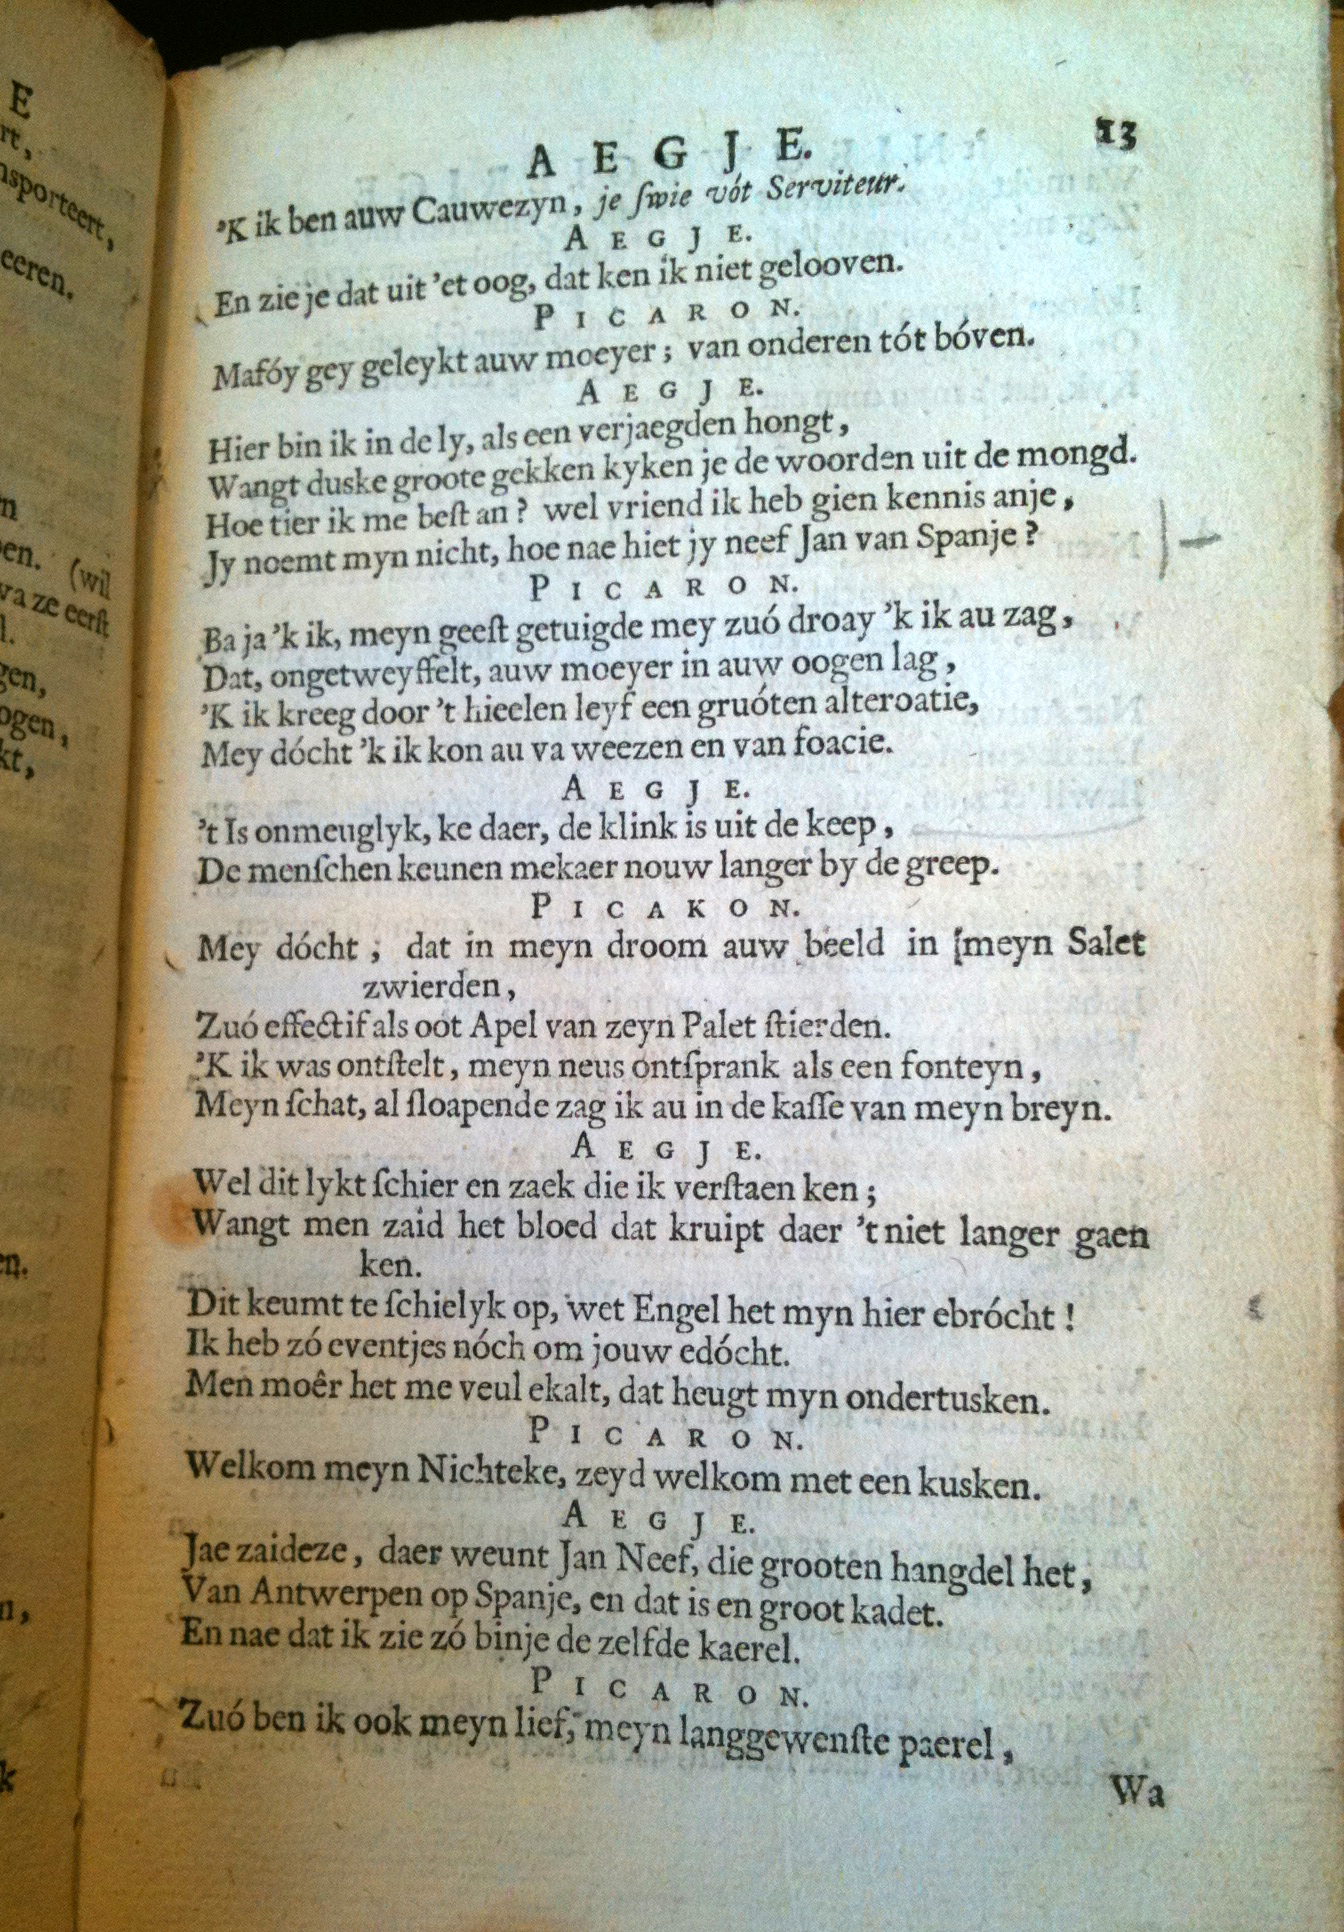 E
rt,
nsporteert,
eeren.
n
en. (wil
va ze eerſt
l.
gen,
ogen,
kt,
en.
n,
k
AEGJE. 13
'K ik ben auw Cauwezyn, je ſwie vót Serviteur.
AEGJE.
En zie je dat uit 'et oog, dat ken ik niet gelooven.
PICARON.
Mafóy gey geleykt auw moeyer; van onderen tót bóven.
AEGJE.
Hier bin ik in de ly, als een verjaegden hongt,
Wangt duske groote gekken kyken je de woorden uit de mongd.
Hoe tier ik me beſt an? wel vriend ik heb gien kennis anje,
Jy noemt myn nicht, hoe nae hiet jy neef Jan van Spanje?
PICARON.
Ba ja 'k ik, meyn geeſt getuigde mey zuó droay 'k ik au zag,
Dat, ongetweyffelt, auw moeyer in auw oogen lag,
'K ik kreeg door 't hieelen leyf een gruóten alteroatie,
Mey dócht 'k ik kon au va weezen en van foacie.
AEGJE.
't Is onmeuglyk, ke daer, de klink is uit de keep,
De menſchen keunen mekaer nouw langer by de greep.
PICAKON.
Mey dócht, dat in meyn droom auw beeld in [meyn Salet
zwierden,
Zuó effectif als oot Apel van zeyn Palet ſtierden.
'K ik was ontſtelt, meyn neus ontſprank als een fonteyn,
Meyn ſchat, al ſloapende zag ik au in de kaſſe van meyn breyn.
AEGJE.
Wel dit lykt ſchier en zaek die ik verſtaen ken;
Wangt men zaid het bloed dat kruipt daer 't niet langer gaen
ken.
Dit keumt te ſchielyk op, wet Engel het myn hier ebrócht!
Ik heb zó eventjes nóch om jouw edócht.
Men moêr het me veul ekalt, dat heugt myn ondertusken.
PICARON.
Welkom meyn Nichteke, zeyd welkom met een kusken.
AEGJE.
Jae zaideze, daer weunt Jan Neef, die grooten hangdel het,
Van Antwerpen op Spanje, en dat is en groot kadet.
En nae dat ik zie zó binje de zelfde kaerel.
PICARON.
Zuó ben ik ook meyn lief, meyn langgewenſte paerel,
Wa